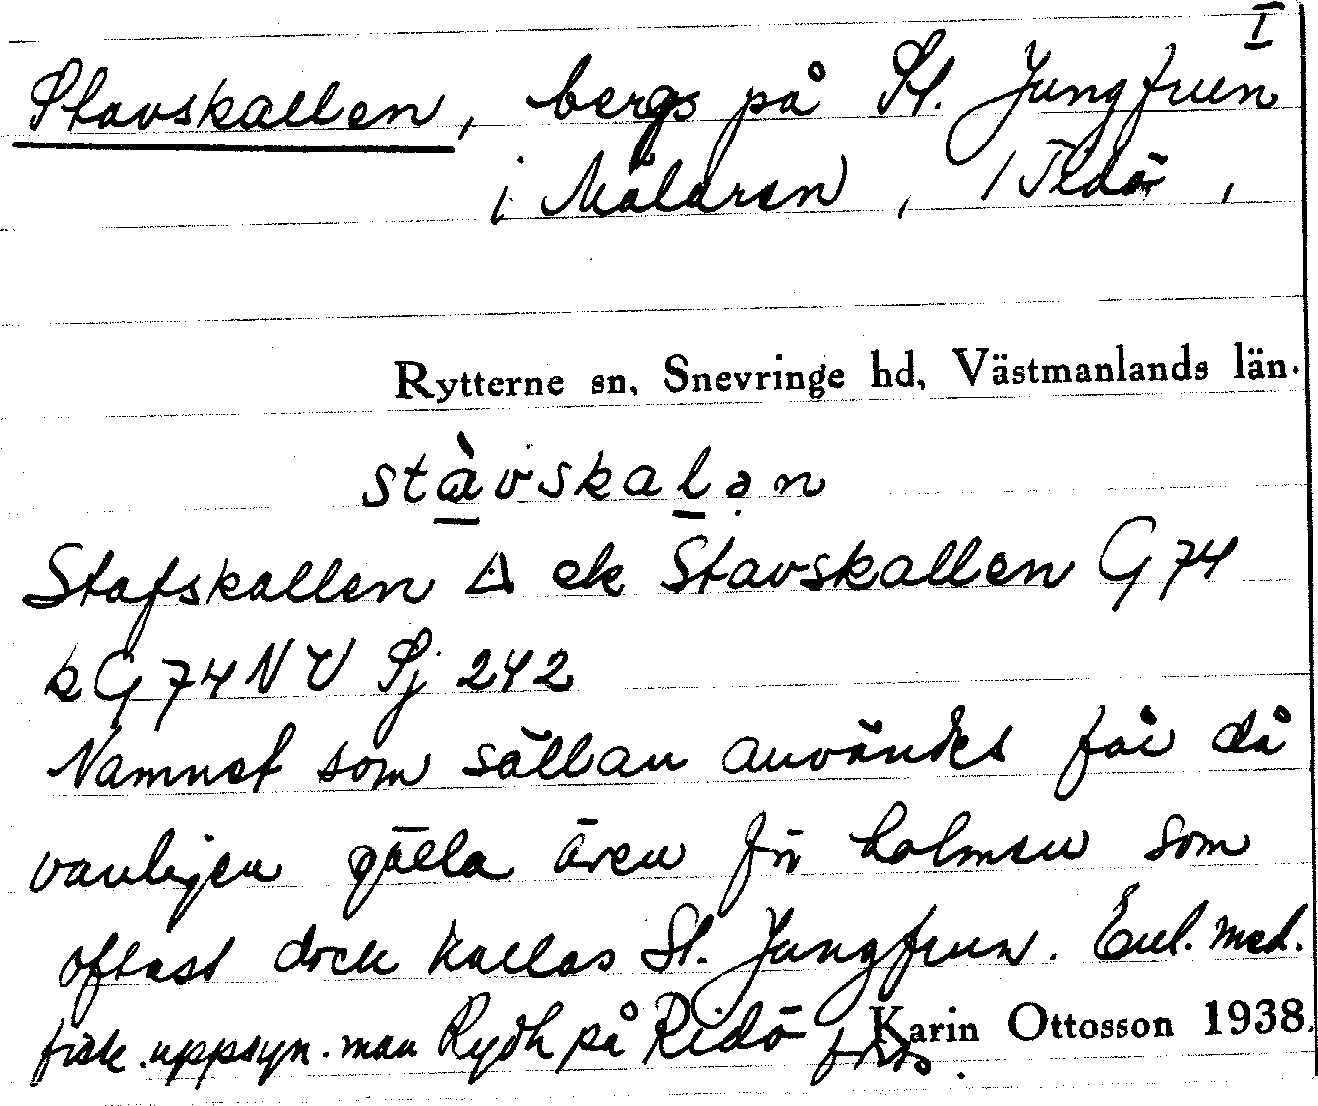 I
Stavskallen, berg på St. Jungfrun
i Mälaren, / Tidö,
Rytterne sn, Snevringe hd, Västmanlands län.
stàvskalən
Stafskallen Δ ek Stavskallen G 74
k G 74 NV Sj 242
Namnet som sällan användes får då
vanligen gälla även för holmen som
oftast dock kallas St. Jungfrun. Enl. med.
fisk.uppsyn.man Rydh på Ridö
Karin Ottosson 1938.